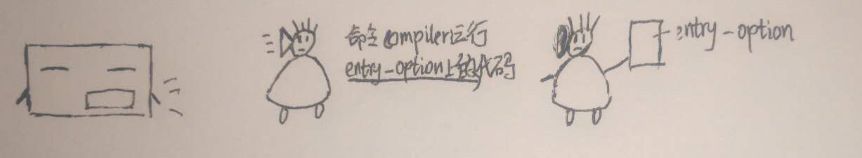 命令compiler运行
entry-option上的代码
entry-option